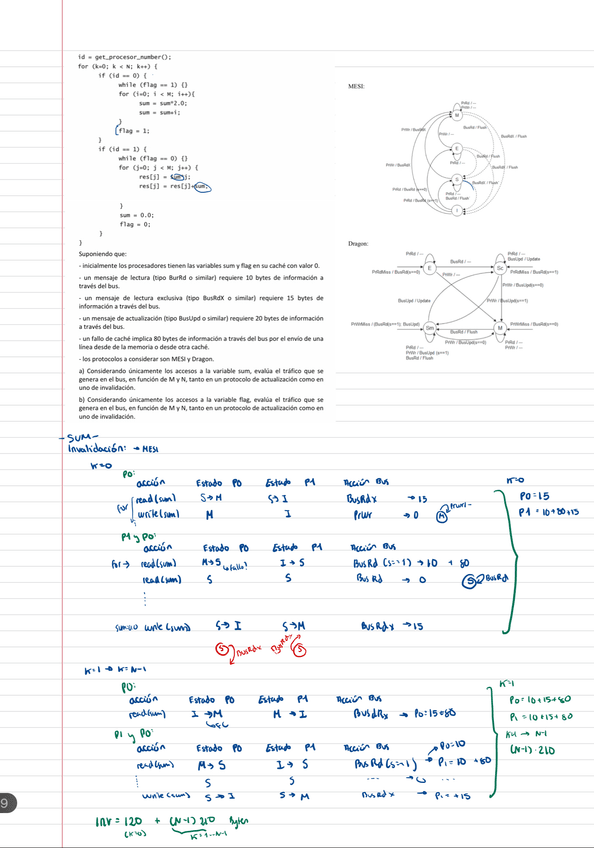 id = get_procesor_number();
for (k=0; k < N; k++) {
if (id == 0) {
while (flag == 1) {}
for (i=0; i < M; i++){
sum = sum*2.0;
sum = sum+i;
}
flag = 1;
}
if (id == 1) {
while (flag == 0) {}
for (j=0; j < M; j++) {
res[j] = sum*j;
res[j] = res[j]+sum;
}
sum = 0.0;
flag = 0;
}
}
Suponiendo que:
- inicialmente los procesadores tienen las variables sum y flag en su caché con valor 0.
- un mensaje de lectura (tipo BurRd o similar) requiere 10 bytes de información a través del bus.
- un mensaje de lectura exclusiva (tipo BusRdX o similar) requiere 15 bytes de información a través del bus.
- un mensaje de actualización (tipo BusUpd o similar) requiere 20 bytes de información a través del bus.
- un fallo de caché implica 80 bytes de información a través del bus por el envío de una línea desde de la memoria o desde otra caché.
- los protocolos a considerar son MESI y Dragon.
a) Considerando únicamente los accesos a la variable sum, evalúa el tráfico que se genera en el bus, en función de M y N, tanto en un protocolo de actualización como en uno de invalidación.
b) Considerando únicamente los accesos a la variable flag, evalúa el tráfico que se genera en el bus, en función de M y N, tanto en un protocolo de actualización como en uno de invalidación.
MESI:
PrRd / --
PrWr / --
M
BusRd / Flush
PrWr / BusRdX
PrWr / --
E
S
BusRdX / Flush
PrRd / --
BusRd / Flush
PrRd / BusRd (s==0)
PrRd / BusRd (s==1)
Dragon:
PrRd / --
PrRd / --
BusUpd / Update
BusRd / --
PrRdMiss / BusRd(s==0)
E
Sc
PrRdMiss / BusRd(s==1)
PrWr / --
PrWr / BusUpd(s==0)
BusUpd / Update
PrWr / BusUpd(s==1)
PrWrMiss / (BusRd(s==1); BusUpd)
Sm
BusRd / Flush
M
PrWrMiss / BusRd(s==0)
PrWr / BusUpd(s==0)
PrRd / --
PrWr / BusUpd (s==1)
BusRd / Flush
PrRd / --
PrWr / --
- SUM -
Invalidación: → MESI
K=0
P0:
acción Estado P0 Estado P1 Acción Bus
for read(sum) S→M S→I BusRdx → 15
write(sum) M I PrWr → 0
K=0
P0=15
P1 = 10+80+15
P1 y P0:
acción Estado P0 Estado P1 Acción Bus
for → read(sum) M→S I→S BusRd (s==1) → 10 + 80
read(sum) S S BusRd → 0
S BusRd
write (sum) S→I S→M BusRdx → 15
S BusRdx S
K=1 → K=N-1
P0:
acción Estado P0 Estado P1 Acción Bus
read(sum) I→M M→I BusdRx → P0=15+80
K=1
P0 = 10+15+80
P1 = 10+15+80
K=1 → N-1
(N-1)·210
P1 y P0:
acción Estado P0 Estado P1 Acción Bus
P0=10
read(sum) M→S I→S BusRd (s=1) → P1=10 +80
S S
write (sum) S→I S→M BusRdx → P1=+15
INV = 120 + (N-1) 210 Bytes
(K=0) K=1...N-1
9